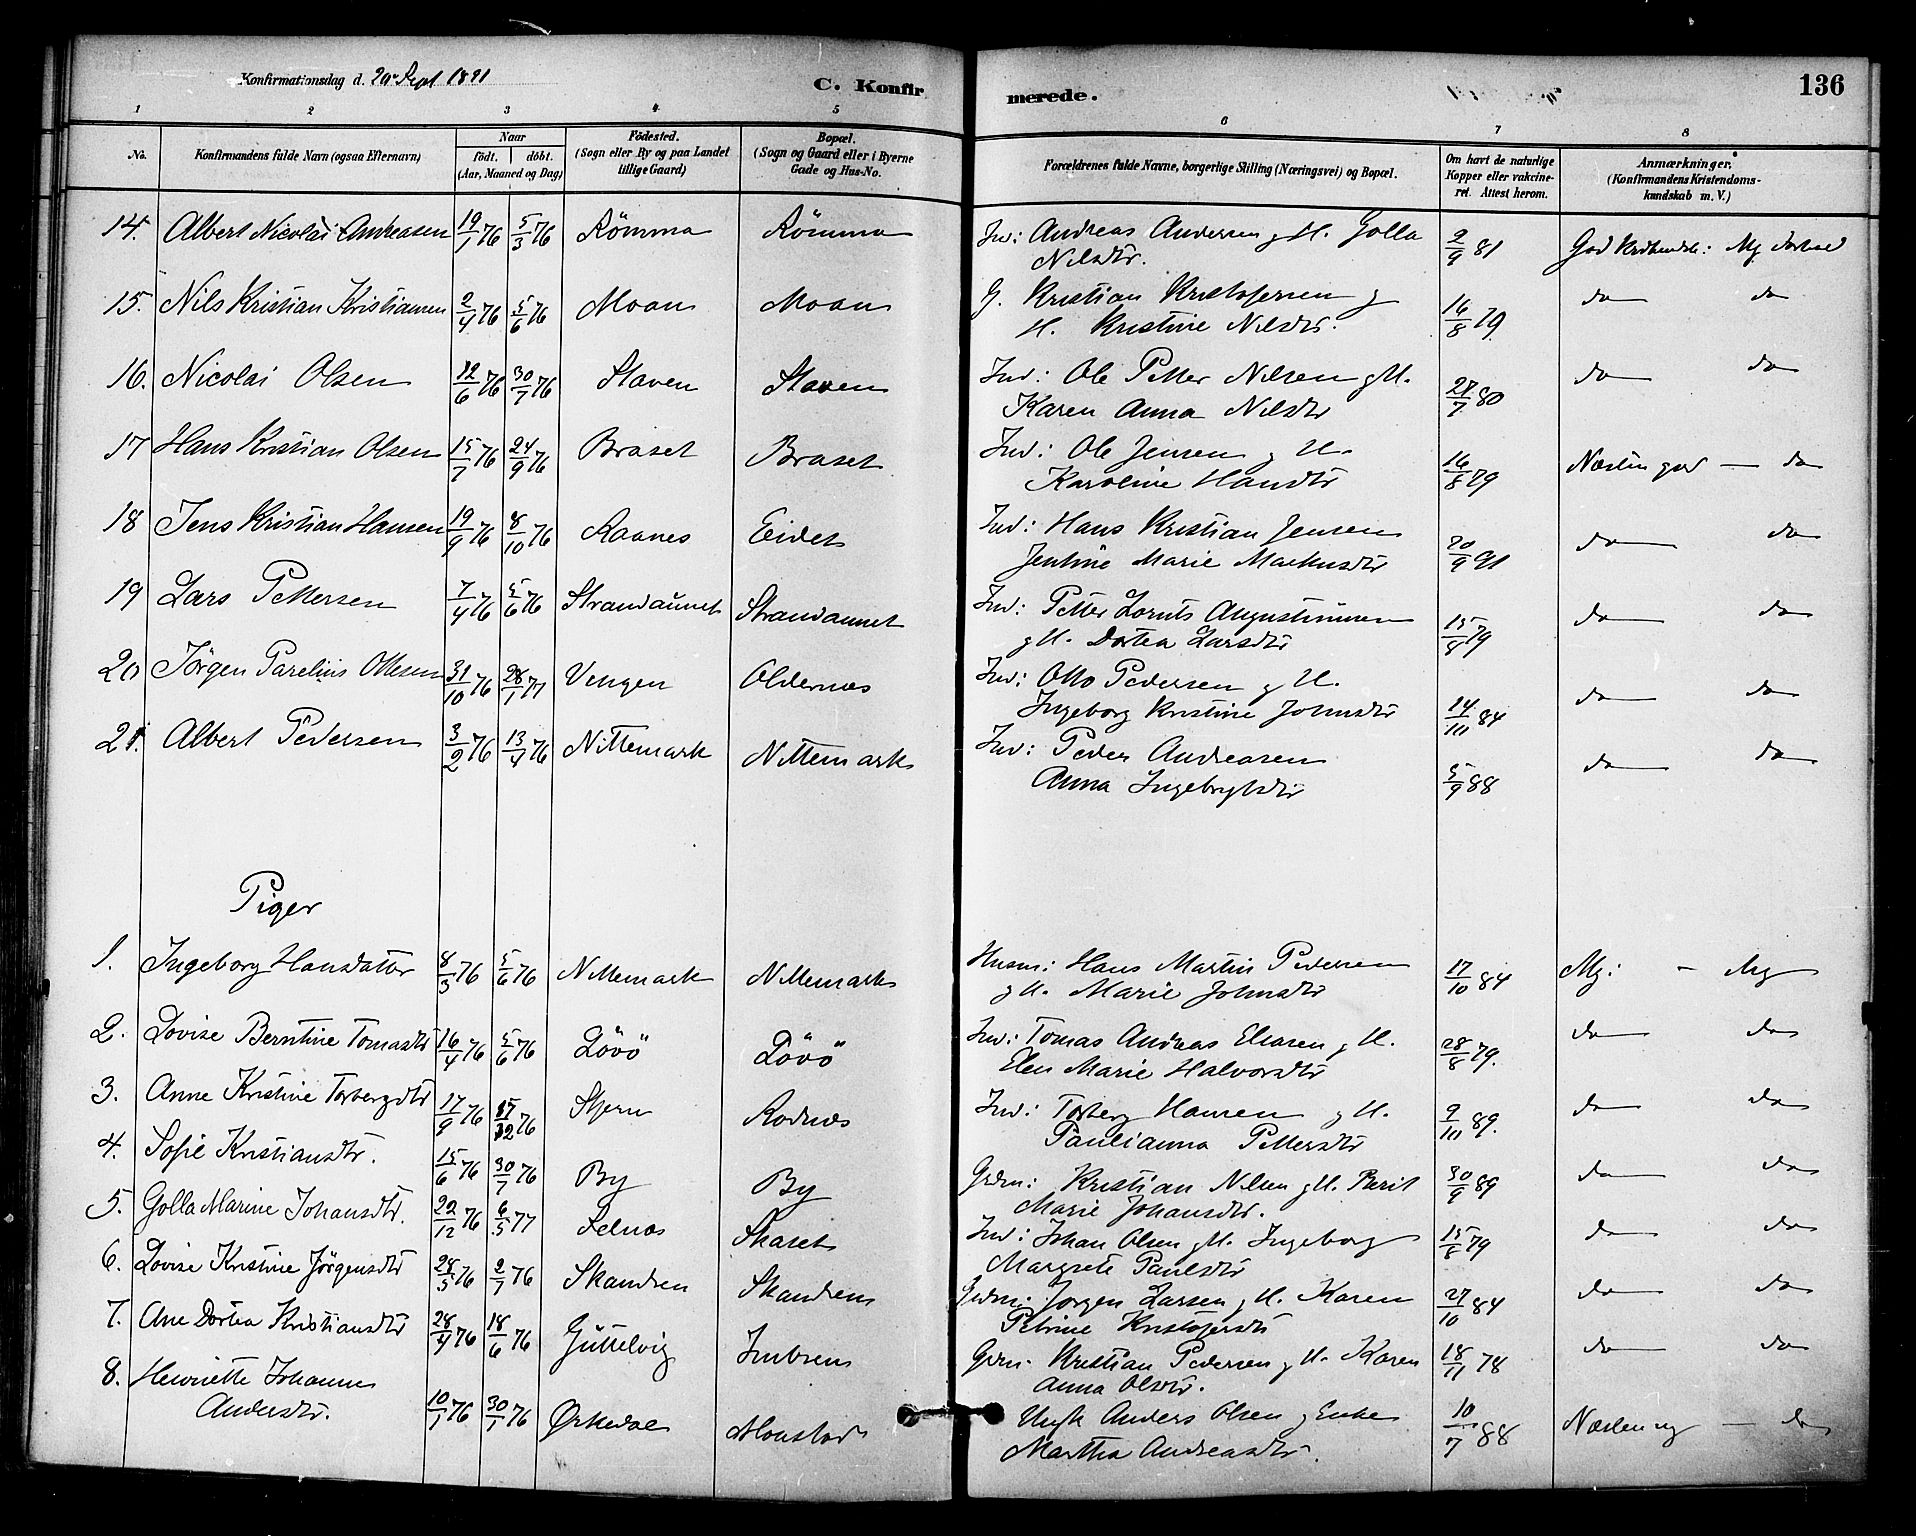 Konfirmationsdag d. 20 Sept 1891
C. Konfirmerede.
136
1 2 3 4 5 6 7 8
No. Konfirmandens fulde Navn (ogsaa Efternavn) Naar født. døbt. (Aar, Maaned og Dag) Fødested. (Sogn eller By og paa Landet tillige Gaard) Bopæl. (Sogn og Gaard eller i Byerne Gade og Hus-No. Forældrenes fulde Navne, borgerlige Stilling (Næringsvei) og Bopæl. Om havt de naturlige Kopper eller vakcineret. Attest herom. Anmærkninger. (Konfirmandens Kristendomskundskab m. V.)
14. Albert Nicolai Andreasen 19/1 76 5/3 76 Rømma Rømma Ind: Andreas Andersen g H. Golla
Nilsdtr. 2/9 81 God
15. Nils Kristian Kristiansen 2/4 76 5/6 76 Moan Moan G. Kristian Kristofersen g
H. Kristine Nilsdtr. 16/8 79 do do
16. Nicolai Olsen 12/6 76 30/7 76 Staven Staven Ind: Ole Petter Nilsen g H.
Karen Anna Nilsdtr 27/7 80 do do
17 Hans Kristian Olsen 15/7 76 24/9 76 Braset Braset Ind: Ole Jensen g H.
Karoline Hansdtr 16/8 79 Næsten god — do
18 Jens Kristian Hansen 19/9 76 8/10 76 Raanes Eidet Ind: Hans Kristian Jensen
Jentine Marie Markusdtr 20/9 91 do do
19 Lars Pettersen 7/4 76 5/6 76 Strandaunet Strandaunet Ind: Petter Lornts Augustinusen
g H. Dortea Larsdtr 15/8 79 do do
20 Jørgen Parelius Ottesen 31/10 76 28/1 77 Vengen Oldernæs Ind: Otto Pedersen g H.
Ingeborg Kristine Johnsdtr 14/10 84 do do
21. Albert Pedersen 3/2 76 13/4 76 Nittemark Nittemark Ind: Peder Andreasen
Anna Ingebrgtsdtr 5/9 88 do do
Piger
1. Ingeborg Hansdatter 8/3 76 5/6 76 Nittemark Nittemark Husm: Hans Martin Pedersen
g H. Marie Johnsdtr 17/10 84 Mg: – Mg
2. Lovise Berntine Tomasdtr 16/4 76 5/6 76 Løvø Løvø Ind: Tomas Andreas Eliasen g H.
Elen Marie Halvorsdtr 28/8 79. do do
3. Anne Kristine Torbergsdtr 17/9 76 17/12 76 Stjern Rødnæs Ind: Torberg Hansen g H.
Paulianna Pettersdtr 9/10 89. do do
4. Sofie Kristiansdtr. 15/6 76 30/7 76 By By Grdm: Kristian Nilsen g H. Berit
Marie Johansdtr. 30/9 89 do do
5. Golla Marine Johansdtr. 22/12 76 6/5 77 Selnæs Skaset Ind: Johan Olsen g H. Ingeborg
Margrete Paulsdtr 15/8 79 do do
6. Lovise Kristine Jørgensdtr 28/5 76 2/7 76 Skandsen Skandsen Grdm: Jørgen Larsen g H. Karen
Petrine Kristofersdtr 27/10 84 do do
7. Ane Dortea Kristiansdtr 28/4 76 18/6 76 Guttelvig Imbsen Grdm: Kristian Pedersen g H. Karen
Anna Olsdtr. 18/11 78 do do
8. Henriette Johanne
Andersdtr. 10/1 76 30/1 76 Ørkedal Monstad Ungk Anders Olsen g Enke
Martha Andreasdtr. 10/7 88 Næsten mg — do